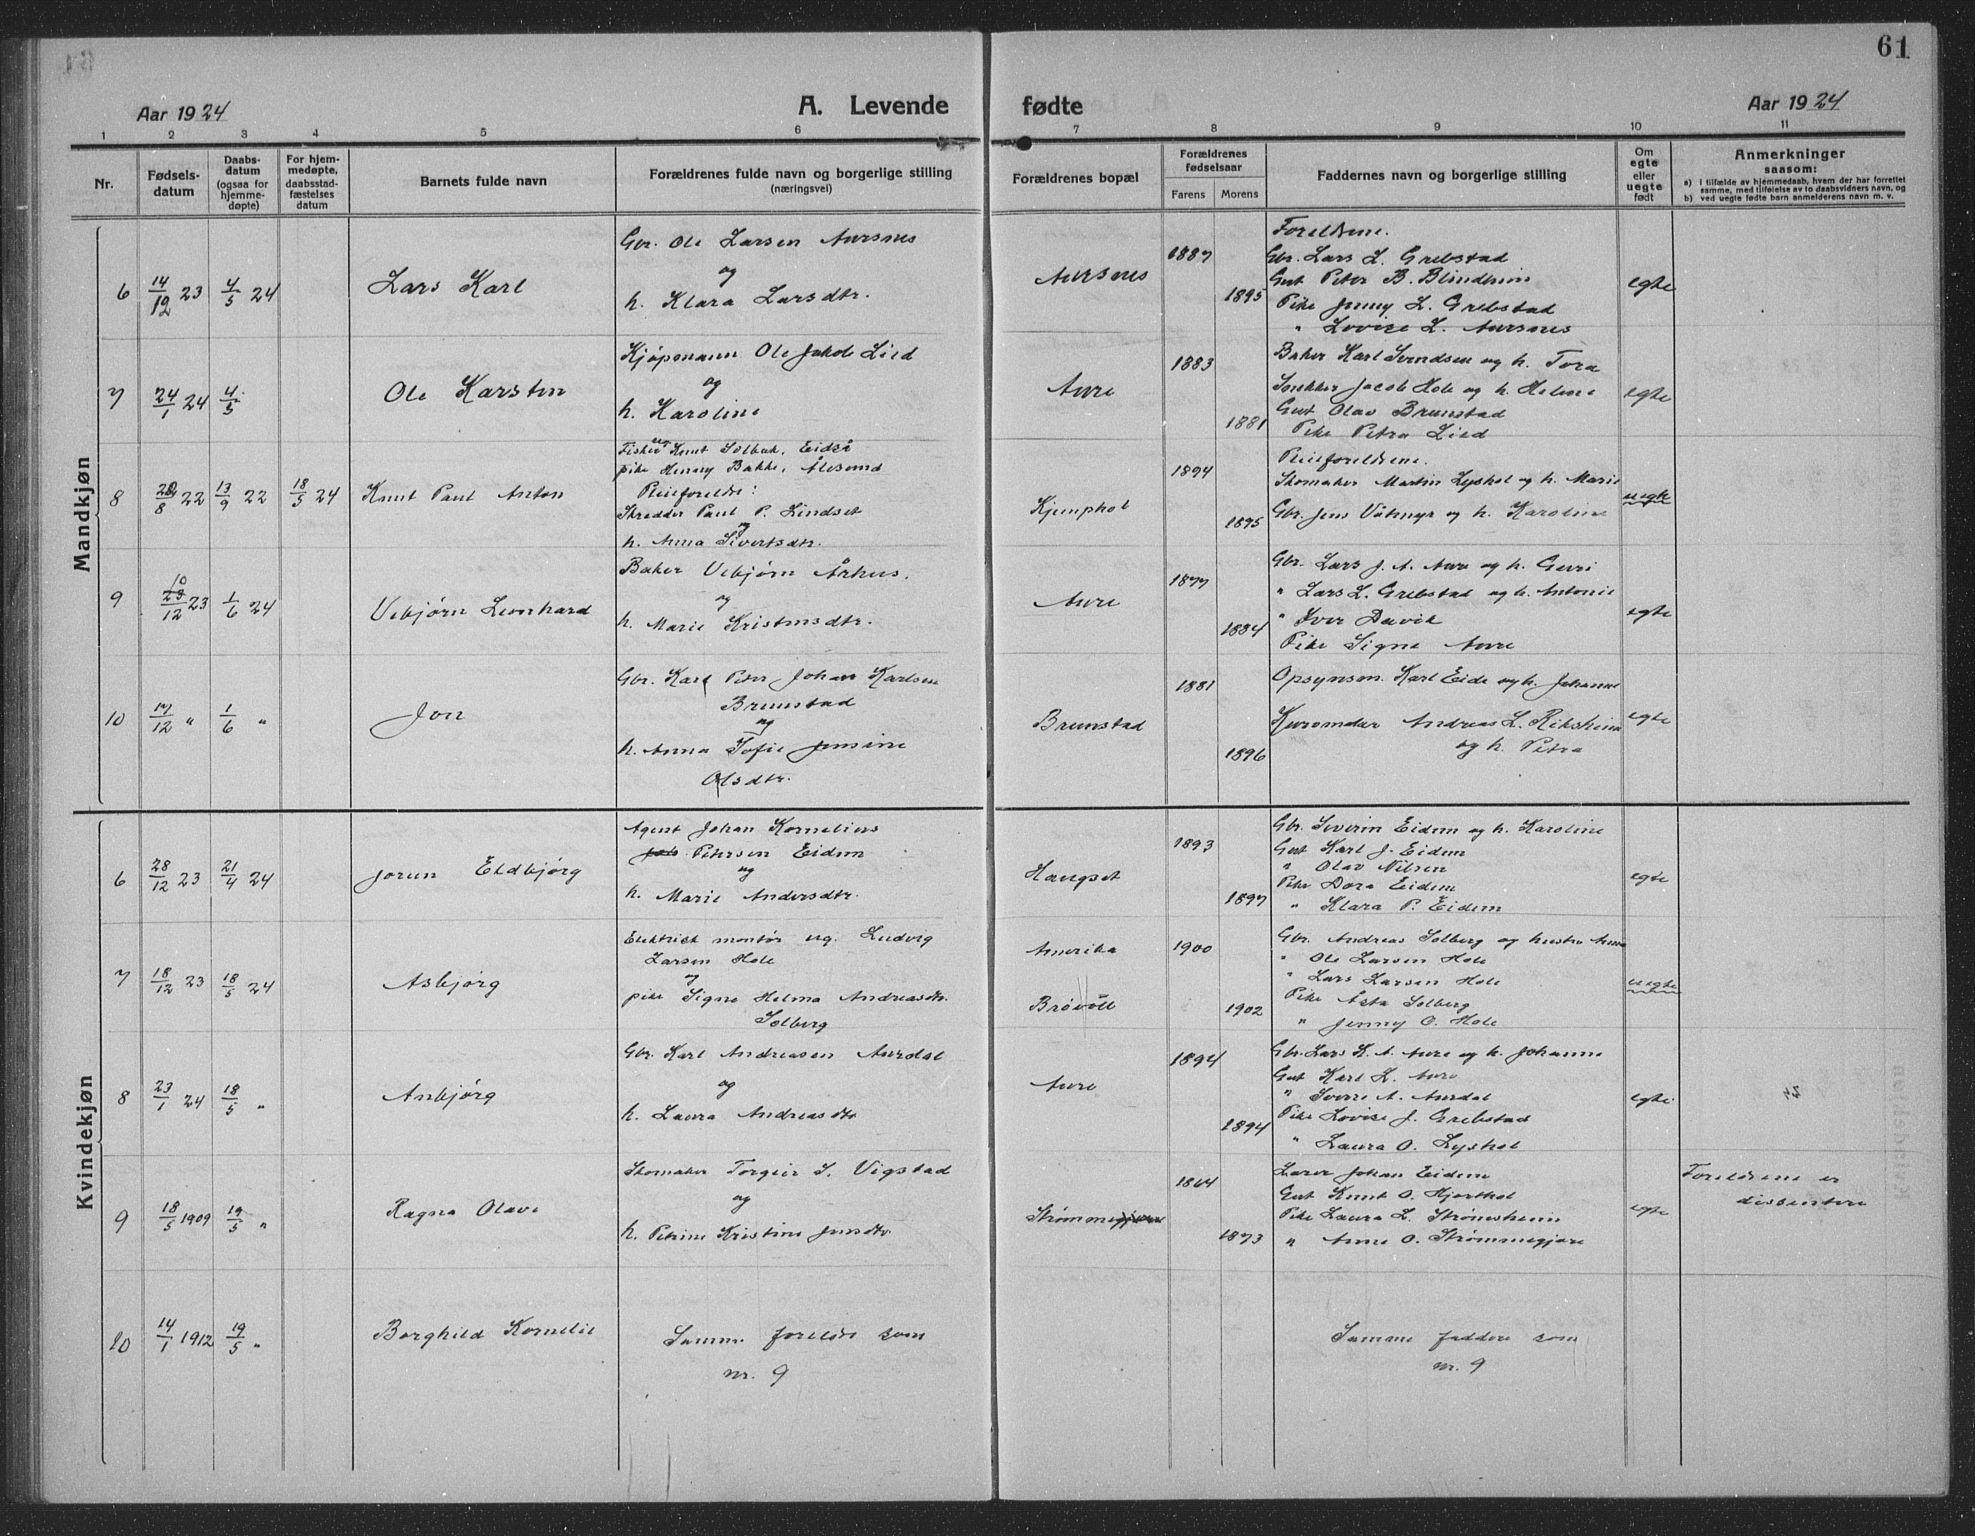 61
Aar 1924
A. Levende fødte
Aar 1924
1 2 3 4 5 6 7 8 9 10 11
Nr.
Fødsels-
datum
Daabs-
datum
(ogsaa for
hjemme-
døpte)
For hjem-
medøpte,
daabsstad-
fæstelses
datum
Barnets fulde navn
Forældrenes fulde navn og borgerlige stilling
(næringsvei)
Forældrenes bopæl
Forældrenes
fødselsaar
Farens Morens
Faddernes navn og borgerlige stilling
Om
egte
eller
uegte
født
Anmerkninger
saasom:
a) i tilfælde av hjemmedaab, hvem der har forrettet
samme, med tilføielse av to daabsvidners navn, og
b) ved uegte fødte barn anmelderens navn m. v.
Mandkjøn
6 14/12 23 4/5 24
Lars Karl
Gbr. Ole Larsen Aursnes
og
h. Klara Larsdtr.
Aursnes
1887
1895
Foreldrene.
Gbr. Lars L. Grebstad
Gut Peter B. Blindheim
Pike Jenny L. Grebstad
" Lovise L. Aursnes
egte
7 24/1 24 4/5
Ole Karsten
Kjøpmann Ole Jakob Lied
og
h. Karoline
Aure
1883
1881
Baker Karl Svendsen og h. Tora
Snekker Jacob Hole og h. Helene
Gut Olav Brunstad
Pike Petra Lied
egte
8 /8 22 13/9 22 18/5 24
Knut Paul Anton
Fisker Knut Solbak, Eidså
pike Henny Bakke, Ålesund
Pleieforeldre:
Skredder Paul P. Lindset
og
h. Anna Sivertsdtr.
Kjemphol
1894
1895
Pleieforeldrene.
Skomaker Martin Lyshol og h. Marie
Gbr. Jens Våtmyr og h. Karoline
uegte
9 10/12 23 1/6 24
Vebjørn Leonhard
Baker Vebjørn Århus.
og
h. Marie Kristensdtr.
Aure
1877
1884
Gbr. Lars J. A. Aure og h. Guri
" Lars L. Grebstad og h. Antonie
" Iver Davik
Pike Signe Aure
egte
10 17/12 " 1/6 "
Jon
Gbr. Karl Peter Johan Karlsen
Brunstad
og
h. Anna Sofie Jensine
Olsdtr.
Brunstad
1881
1896
Opsynsm. Karl Eide og h. Johanne
Andreas L. Riksheim
og h. Petra
egte
Kvindekjøn
6 28/12 23 21/4 24
Jorun Eldbjørg
Agent Johan Kornelius
Petersen Eidem
og
h. Marie Andersdtr.
Haugset
1893
1897
Gbr. Severin Eidem og h. Karoline
Gut Karl J. Eidem
" Olav Nilsen
Pike Dora Eidem
" Klara P. Eidem
egte
7 18/12 23 18/5 24
Asbjørg
Elektrisk montør ug. Ludvig
Larsen Hole
og
pike Signe Helma Andreasdtr.
Solberg
Amerika
Brøvoll
1900
1902
Gbr. Andreas Solberg og hustru Anna
" Ole Larsen Hole
" Lars Larsen Hole
Pike Åsta Solberg
" Jenny O. Hole
uegte
8 23/1 24 18/5 "
Anbjørg
Gbr. Karl Andreasen Aurdal
og
h. Laura Andreasdtr
Aure
1894
1894
Gbr. Lars K. A. Aure og h. Johanne
Gut Karl K. Aure
" Sverre A. Aurdal
Pike Lovise J. Grebstad
" Laura O. Lyshol
egte
9 18/5 1909 19/5 "
Ragna Olave
Skomaker Torgeir S. Vigstad
og
h. Petrine Kristine Jensdtr
Strømmegjære
1864
1873
Lærer Johan Eidem
Gut Knut O. Hjorthol
Pike Laura L. Strømsheim
" Anne O. Strømmegjære
egte
Foreldrene er
dissentere
10 14/1 1912 19/5 "
Borghild Kornelie
Samme foreldre som
nr. 9
Samme faddere som
nr. 9